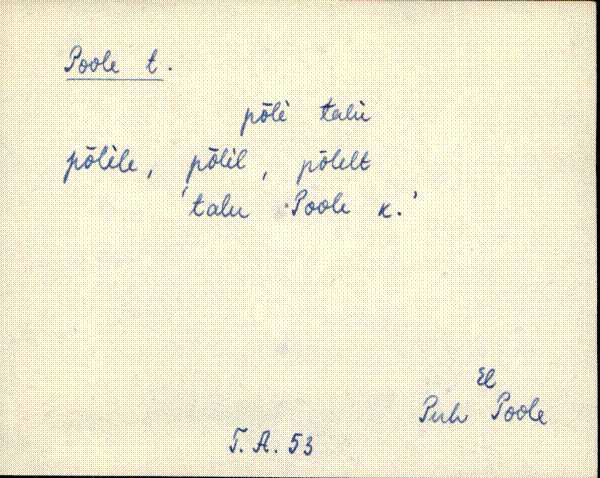 Poole t.
põli talu
põlile, põlil, põlelt
'talu Poole k.'
El
Puh Poole
T. A. 53